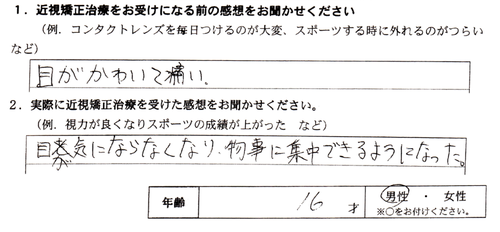 1．近視矯正治療をお受けになる前の感想をお聞かせください
（例．コンタクトレンズを毎日つけるのが大変、スポーツする時に外れるのがつらい
など）
目がかわいて痛い.
2．実際に近視矯正治療を受けた感想をお聞かせください。
（例．視力が良くなりスポーツの成績が上がった　など）
目が気にならなくなり、物事に集中できるようになった。
年齢　16 才　男性 ・ 女性
※○をお付けください。